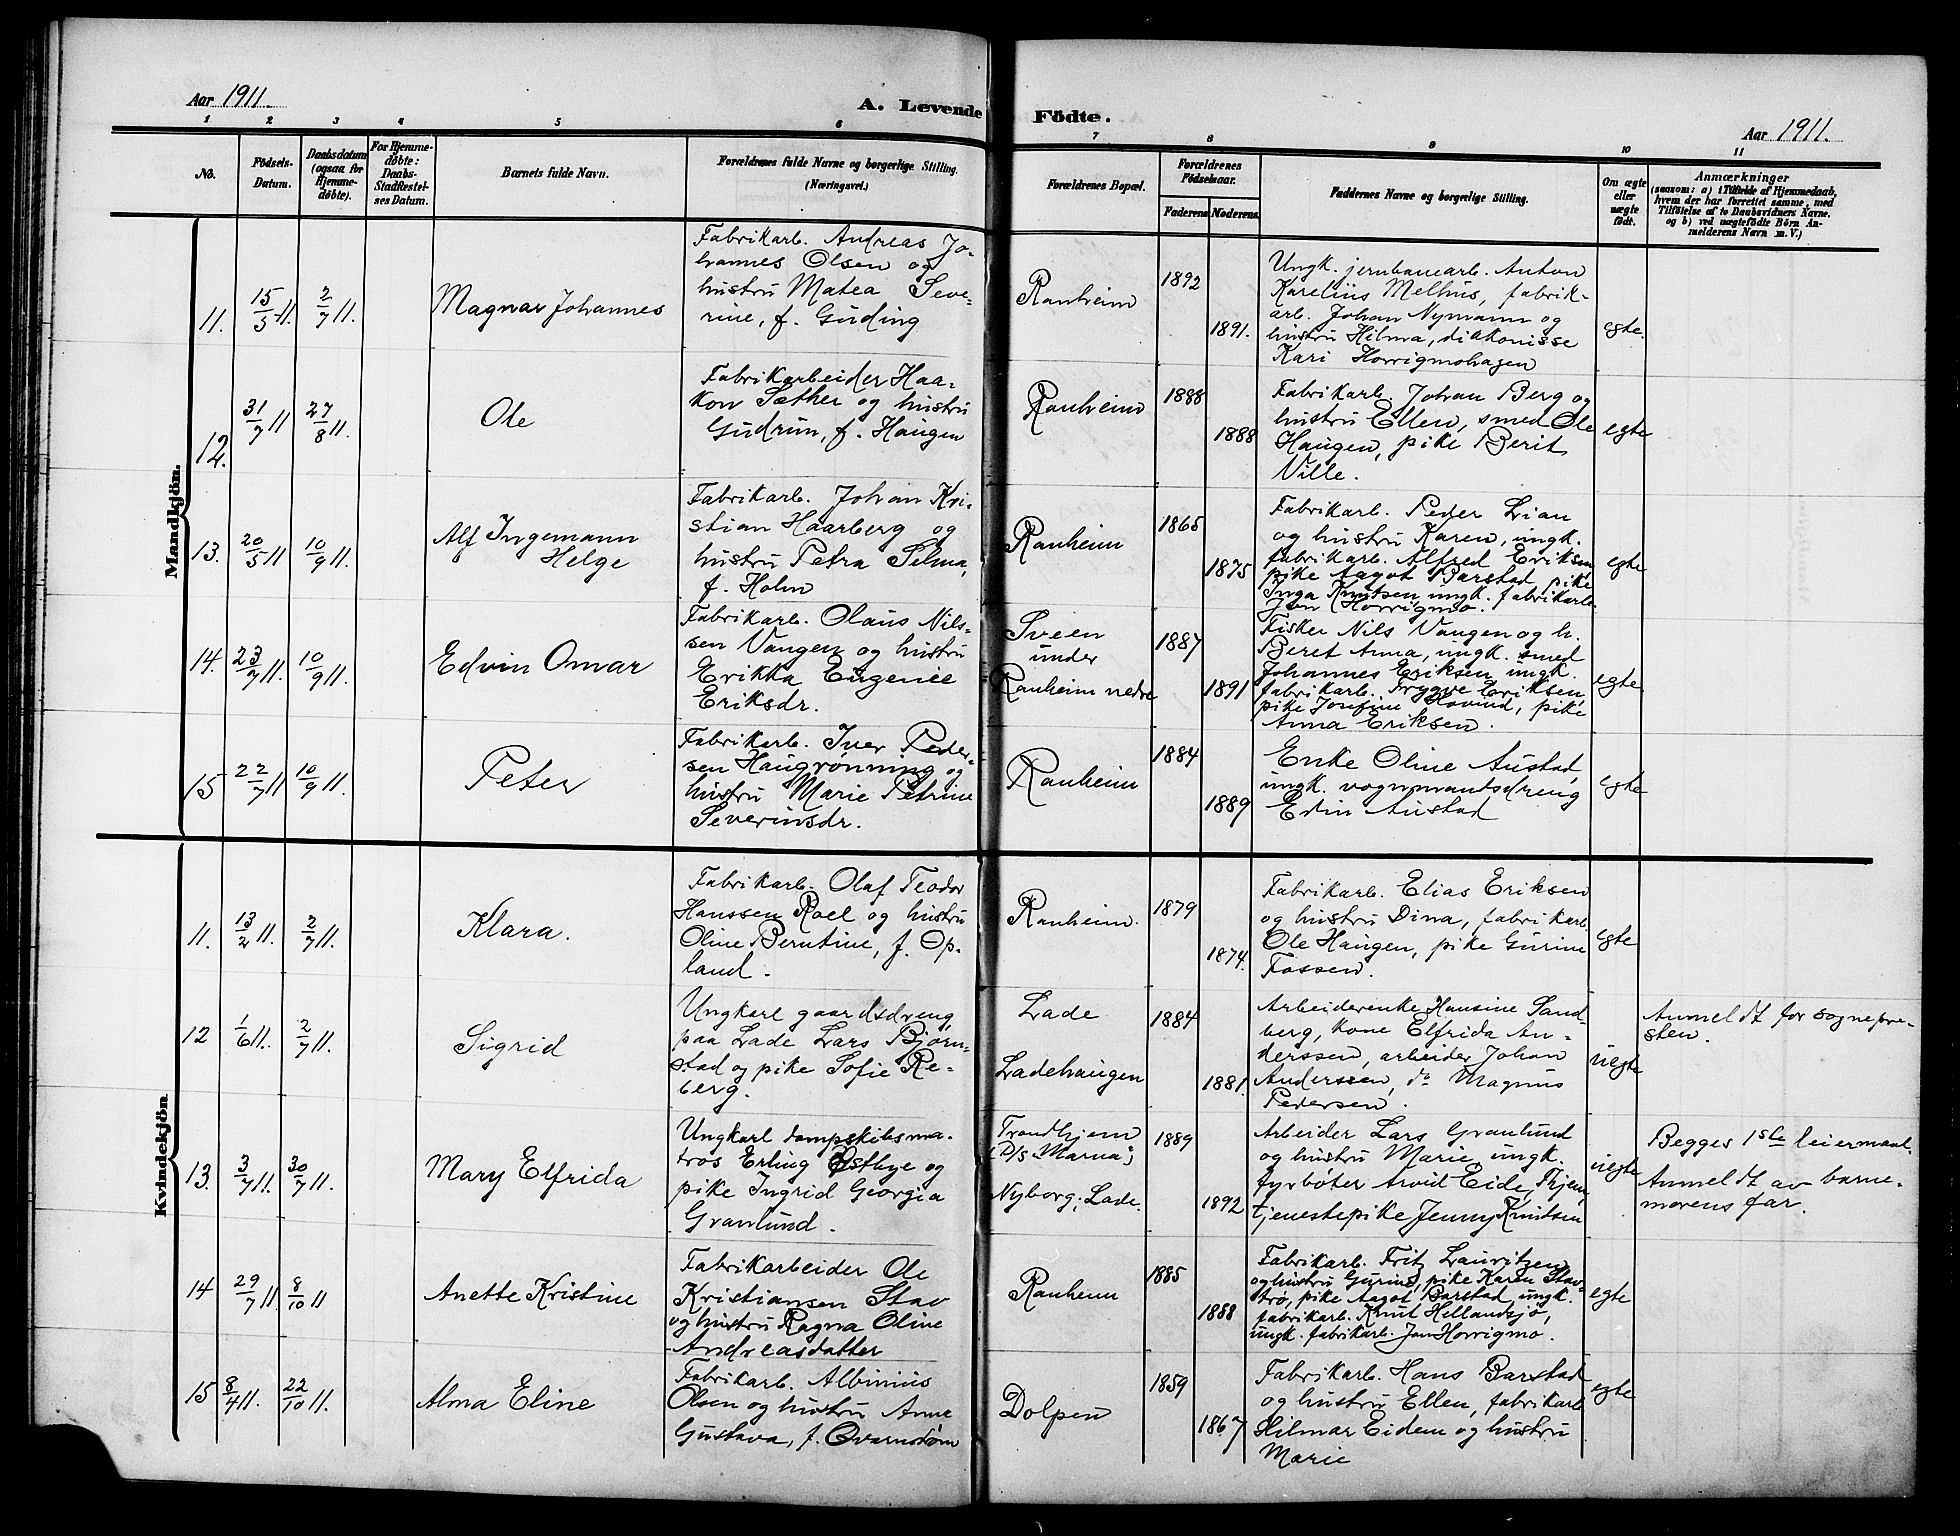 Aar 1911.
A. Levende Födte.
Aar 1911.
1 2 3 4 5 6 7 8 9 10 11
No.
Födsels-
Datum.
Daabsdatum
(ogsaa for
Hjemme-
døbte).
For Hjemme-
døbte:
Daabs-
Stadfæstel-
ses Datum.
Barnets fulde Navn.
Forældrenes fulde Navne og borgerlige Stilling.
(Næringsvei.)
Forældrenes Bopæl.
Forældrenes
Fødselsaar.
Faderens
Moderens.
Faddernes Navne og borgerlige Stilling.
Om ægte
eller
uægte
født.
Anmærkninger
(saasom: a) i Tilfælde af Hjemmedaab,
hvem der har forrettet samme, med
Tilföielse af to Daabsvidners Navne,
og b) ved uægtefødte Börn An-
melderens Navn m. V.)
Mandkjön.
11.
15/5 11.
2/7 11.
Magnar Johannes
Fabrikarb. Andreas Jo-
hannes Olsen og
hustru Matea Seve-
rine, f. Gording
Ranheim
1892
1891.
Ungk. jernbanearb. Anton
Kareliüs Melhus, fabrik-
arb. Johan Nymann og
hustru Hilma, diakonisse
Kari Horrigmohagen
egte.
12.
31/7 11
27/8 11.
Ole
Fabrikarbeider Haa-
kon Sæther og hustru
Gudrun, f. Haugen
Ranheim
1888
1888
Fabrikarb. Johan Berg og
hustru Ellen, smed Ole
Haugen, pike Berit
Ville.
egte
13.
20/5 11
10/9 11.
Alf Ingemann
Helge
Fabrikarb. Johan Kri-
stian Haarberg og
hustru Petra Selma,
f. Holm
Ranheim
1865
1875
Fabrikarb. Peder Lian
og hustru Karen, ungk.
fabrikarb. Alfred Eriksen,
pike Aagot Barstad, pike
Inga Knutsen, ungk. fabrikarb.
Jon Horrigmo.
egte
14.
23/7 11.
10/9 11.
Edvin Omar
Fabrikarb. Olaus Nils-
sen Vangen og hustru
Erikka Eugenie
Eriksdr.
Sveen
under
Ranheim nedre
1887
1891
Fisker Nils Vangen og h.
Beret Anna, ungk. smed
Johannes Eriksen, ungk.
fabrikarb. Trygve Eriksen,
pike Josefine Hovind, pike
Anna Eriksen.
egte
15
22/7 11
10/9 11.
Peter
Fabrikarb. Iver Peder-
sen Haugrønning og
hustru Marie Petrine
Severinsdr.
Ranheim
1884
1889
Enke Oline Austad,
ungk. vognmandsdreng
Edin Austad
egte
Kvindekjön.
11.
13/2 11.
2/7 11.
Klara.
Fabrikarb. Olaf Teodor
Hanssen Roel og hustru
Oline Berntine, f. Op-
land.
Ranheim.
1879
1874.
Fabrikarb. Elias Eriksen
og hustru Dina, fabrikarb.
Ole Haugen, pike Gurine
Fossen.
egte
12
1/6 11.
2/7 11.
Sigrid
Ungkarl gaardsdreng
paa Lade Lars Bjørn-
stad og pike Sofie Re-
berg.
Lade
Ladehaugen
1884
1881.
Arbeiderenke Hansine Sand-
berg, kone Elfrida An-
derssen, arbeider Johan
Anderssen, do Magnus
Pedersen.
uegte
Anmeldt for sognepre-
sten.
13.
3/7 11.
30/7 11.
Mary Elfrida
Ungkarl dampskibsma-
tros Erling Østbye og
pike Ingrid Georgia
Granlund.
Trondhjem
(D/s "Marna")
Nyborg, Lade.
1889
1892
Arbeider Lars Granlund
og hustru Marie ungk.
fyrbøter Arvid Eide, Thjem,
tjenestepike Jenny Knutsen
uegte
Begges 1ste leiermaal.
Anmeldt av barne-
morens far.
14
29/7 11.
8/10 11
Anette Kristine
Fabrikarbeider Ole
Kristiansen Stav
og hustru Ragna Oline
Andreasdatter
Ranheim
1885
1888
Fabrikarb. Fritz Lauritzen
og hustru Gurine, pike Karen Stav-
trø, pike Aagot Barstad, ungk.
fabrikarb. Knut Hellandsjø,
ungk. fabrikarb. Jon Horrigmo.
egte
15
8/4 11.
22/10 11.
Alma Eline
Fabrikarb. Albinius
Olsen og hustru Anne
Gustava, f. Qvarnstrøm
Dolpen
1859
1867
Fabrikarb. Hans Barstad
og hustru Ellen, fabrikarb.
Hilmar Eidem og hustru
Marie
egte